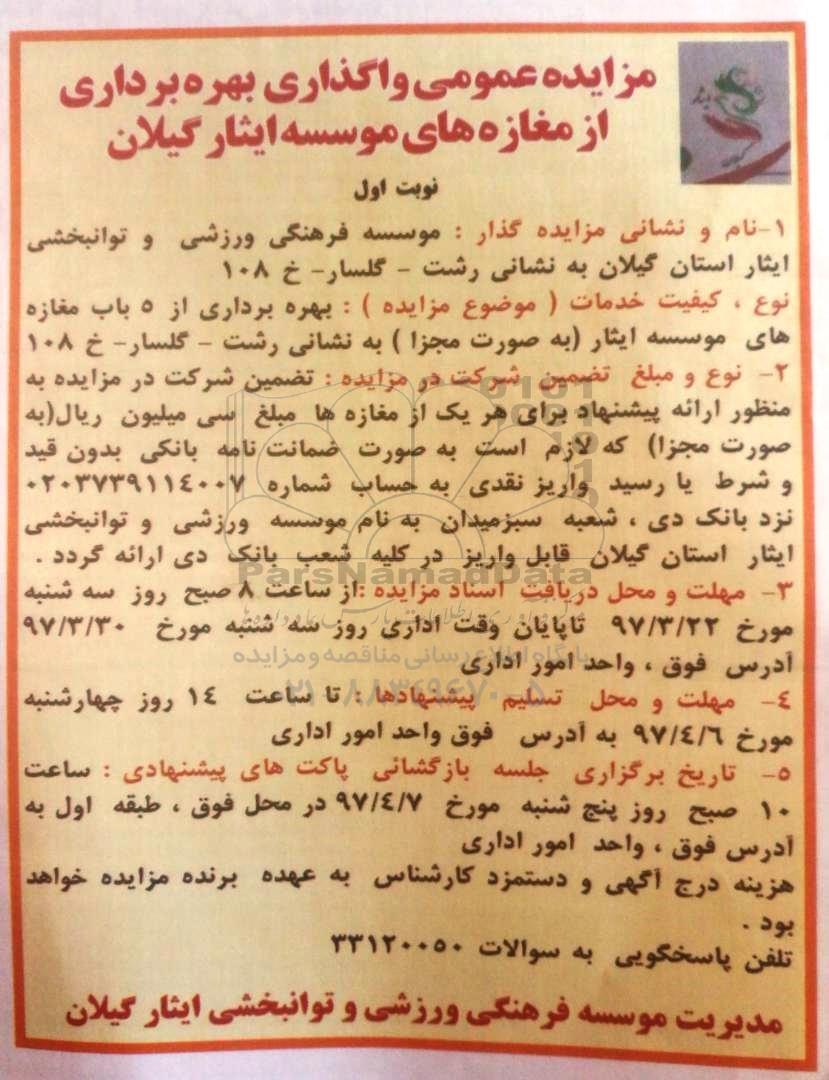 مزایده عمومی واگذاری بهره برداری
از مغازه های موسسه ایثار گیلان
نوبت اول
۱-نام و نشانی مزایده گذار : موسسه فرهنگی ورزشی و توانبخشی
ایثار استان گیلان به نشانی رشت - گلسار- خ ۱۰۸
نوع ، کیفیت خدمات ( موضوع مزایده ) : بهره برداری از ۵ باب مغازه
های موسسه ایثار (به صورت مجزا ) به نشانی رشت - گلسار- خ ۱۰۸
۲- نوع و مبلغ تضمین شرکت در مزایده : تضمین شرکت در مزایده به
منظور ارائه پیشنهاد برای هر یک از مغازه ها مبلغ سی میلیون ریال(به
صورت مجزا) که لازم است به صورت ضمانت نامه بانکی بدون قید
و شرط یا رسید واریز نقدی به حساب شماره ۰۲۰۳۷۳۹۱۱۴۰۰۷
نزد بانک دی ، شعبه سبزمیدان به نام موسسه ورزشی و توانبخشی
ایثار استان گیلان قابل واریز در کلیه شعب بانک دی ارائه گردد .
ParsNamadData
۳- مهلت و محل دریافت اسناد مزایده :از ساعت ۸ صبح روز سه شنبه
مورخ ۹۷/۳/۲۲ تاپایان وقت اداری روز سه شنبه مورخ ۹۷/۳/۳۰
پایگاه اطلاع رسانی مناقصه و مزایده
آدرس فوق ، واحد امور اداری
۰۲۱-۸۸۳۴۹۶۷۰-۵
۴- مهلت و محل تسلیم پیشنهادها : تا ساعت ۱۴ روز چهارشنبه
مورخ ۹۷/۴/۶ به آدرس فوق واحد امور اداری
۵- تاریخ برگزاری جلسه بازگشائی پاکت های پیشنهادی : ساعت
۱۰ صبح روز پنج شنبه مورخ ۹۷/۴/۷ در محل فوق ، طبقه اول به
آدرس فوق ، واحد امور اداری
هزینه درج آگهی و دستمزد کارشناس به عهده برنده مزایده خواهد
بود .
تلفن پاسخگویی به سوالات ۳۳۱۲۰۰۵۰
مدیریت موسسه فرهنگی ورزشی و توانبخشی ایثار گیلان